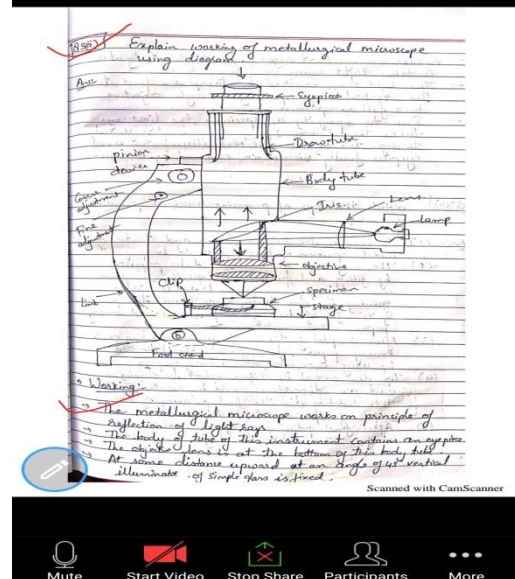 Explain working of metallurgical microscope
using diagram.
Eyepiece
Drawtube
pinion
device
Body tube
Coarse
adjustment
Iris
Lens
lamp
Fine
adjustment
objective
Clip
specimen
stage
Limb
Foot stand
Working:-
→ The metallurgical microscope works on principle of
reflection of light rays.
→ The body of tube of this instrument contains an eye piece.
→ The objective lens is at the bottom of this body tube.
→ At some distance upward at an angle of 45° vertical
illuminator of simple glass is fixed.
Scanned with CamScanner
Mute
Start Video
Stop Share
Participants
More